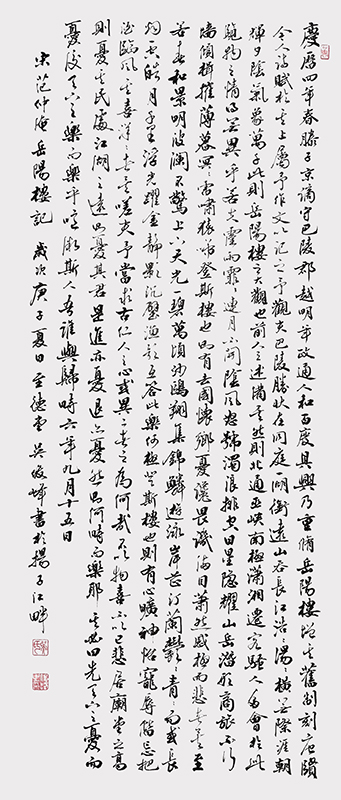 慶曆四年春滕子京謫守巴陵郡越明年政通人和百廢具興乃重脩岳陽樓增其舊制刻唐賢
今人詩賦於其上屬予作文以記之予觀夫巴陵勝狀在洞庭一湖銜遠山吞長江浩浩湯湯橫無際涯朝
暉夕陰氣象萬千此則岳陽樓之大觀也前人之述備矣然則北通巫峽南極瀟湘遷客騷人多會於此
覽物之情得無異乎若夫霪雨霏霏連月不開陰風怒號濁浪排空日星隱耀山岳潛形商旅不行
檣傾楫摧薄暮冥冥虎嘯猿啼登斯樓也則有去國懷鄉憂讒畏譏滿目蕭然感極而悲者矣至
若春和景明波瀾不驚上下天光一碧萬頃沙鷗翔集錦鱗游泳岸芷汀蘭鬱鬱青青而或長
煙一空皓月千里浮光耀金靜影沉璧漁歌互答此樂何極登斯樓也則有心曠神怡寵辱偕忘把
酒臨風其喜洋洋者矣嗟夫予嘗求古仁人之心或異二者之為何哉不以物喜不以己悲居廟堂之高
則憂其民處江湖之遠則憂其君是進亦憂退亦憂然則何時而樂耶其必曰先天下之憂而
憂後天下之樂而樂乎噫微斯人吾誰與歸時六年九月十五日
宋范仲淹岳陽樓記 歲次庚子夏日至德堂吳俊峰書於揚子江畔